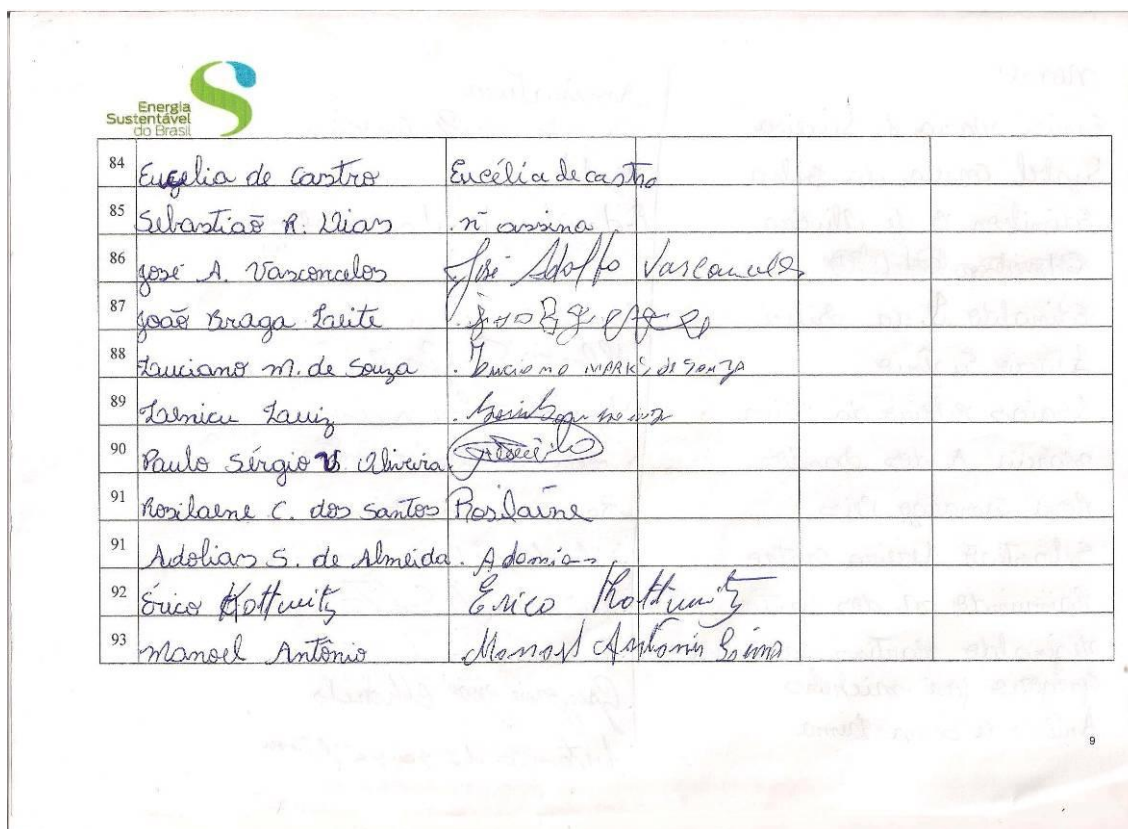 Energia
Sustentável
do Brasil
84 Eucelia de Castro Eucélia de castro
85 Sebastião R. Dias . ñ assina
86 José A. Vasconcelos José Adolfo Vasconcelos
87 João Braga Leite
88 Luciano m. de Souza . Luciano MARK's de SOUZA
89
90 Paulo Sérgio V. Oliveira
91 Rosilaene C. dos Santos Rosilaine
91 Adolias S. de Almeida . Adomias
92 Érico Kottwitz Erico Kottwitz
93 Manoel Antônio Antonio
9